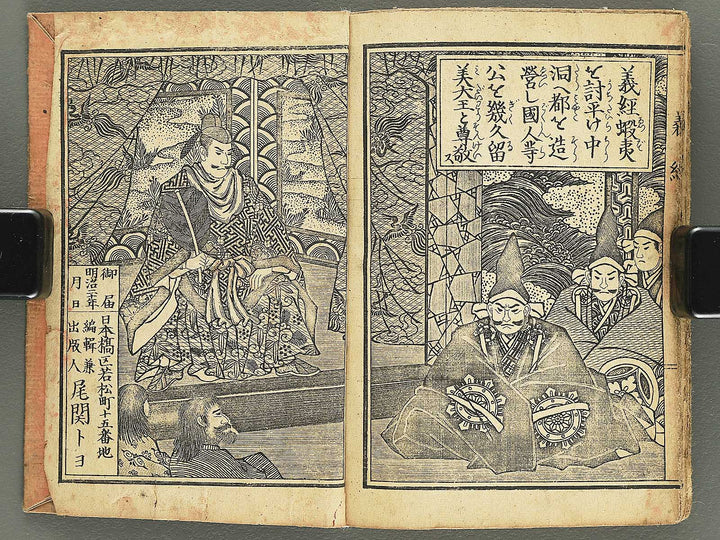 義經蝦夷
を討平け中
洞へ都を造
營し國人等
公を幾久留
美大王と尊敬ス
義經
御届
明治二十年
月日
日本橋区若松町十五番地
編輯兼
出版人
尾関トヨ